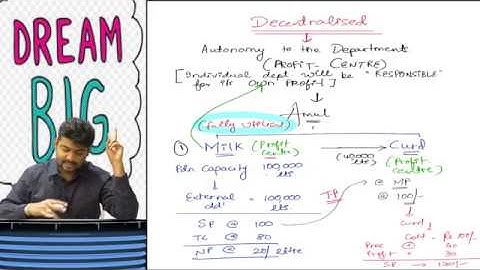 DREAM
BIG
Decentralised
Autonomy to the Departments
(PROFIT- CENTRE)
[Individual dept will be "RESPONSIBLE"
for its own profit]
Amul
(fully utilised)
① Milk (Profit centre)
(40,000 lts)
Curd
(Profit Centre)
Pdn Capacity 100,000 lts
External dd 100,000 lts
TP
@ MP
@ 100/-
SP @ 100
TC @ 80
NP @ 20/litre
Curd
Cost - Rs 100/-
Proc + 40
Profit + 30
SP